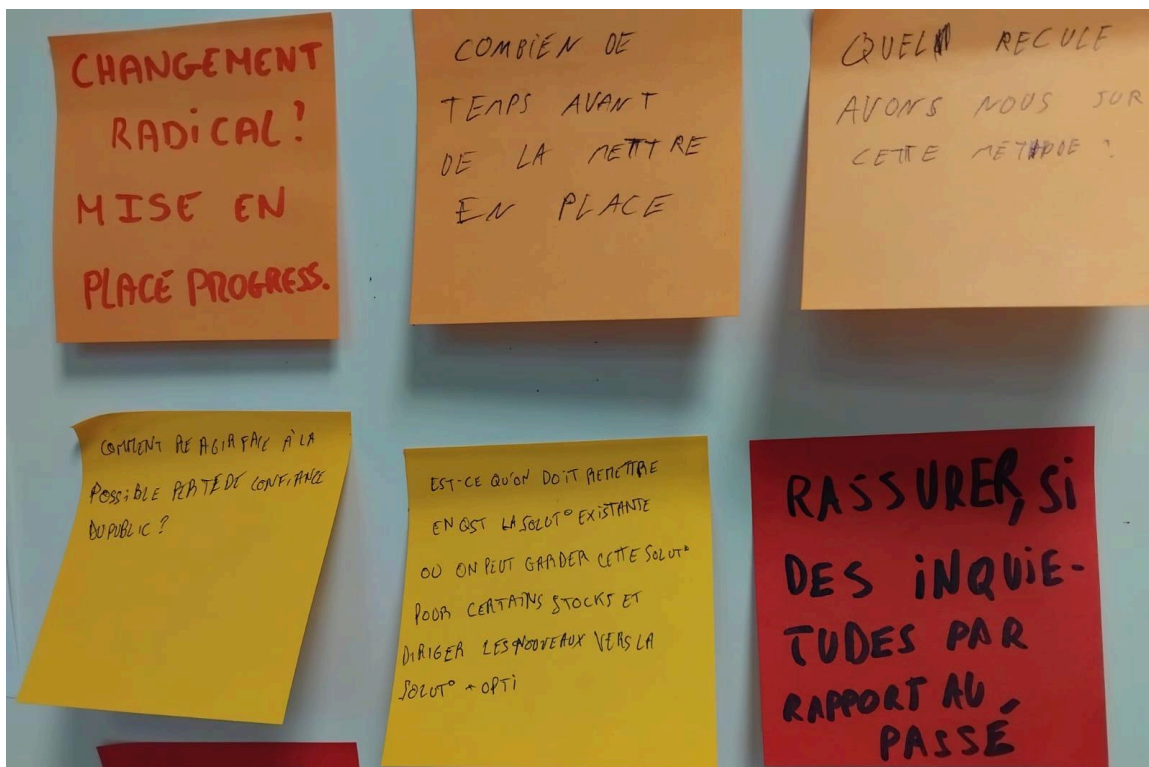 CHANGEMENT
RADICAL?
MISE EN
PLACE PROGRESS.
COMBIEN DE
TEMPS AVANT
DE LA METTRE
EN PLACE
QUEL RECULE
AVONS NOUS SUR
CETTE METHODE ?
COMMENT REAGIR FACE À LA
POSSIBLE PERTE DE CONFIANCE
DU PUBLIC ?
EST-CE QU'ON DOIT REMETTRE
EN QST LA SOLUT° EXISTANTE
OU ON PEUT GARDER CETTE SOLUT°
POUR CERTAINS STOCKS ET
DIRIGER LES NOUVEAUX VERS LA
SOLUT° + OPTI
RASSURER, Si
DES iNQUiE-
TUDES PAR
RAPPORT AU
PASSÉ